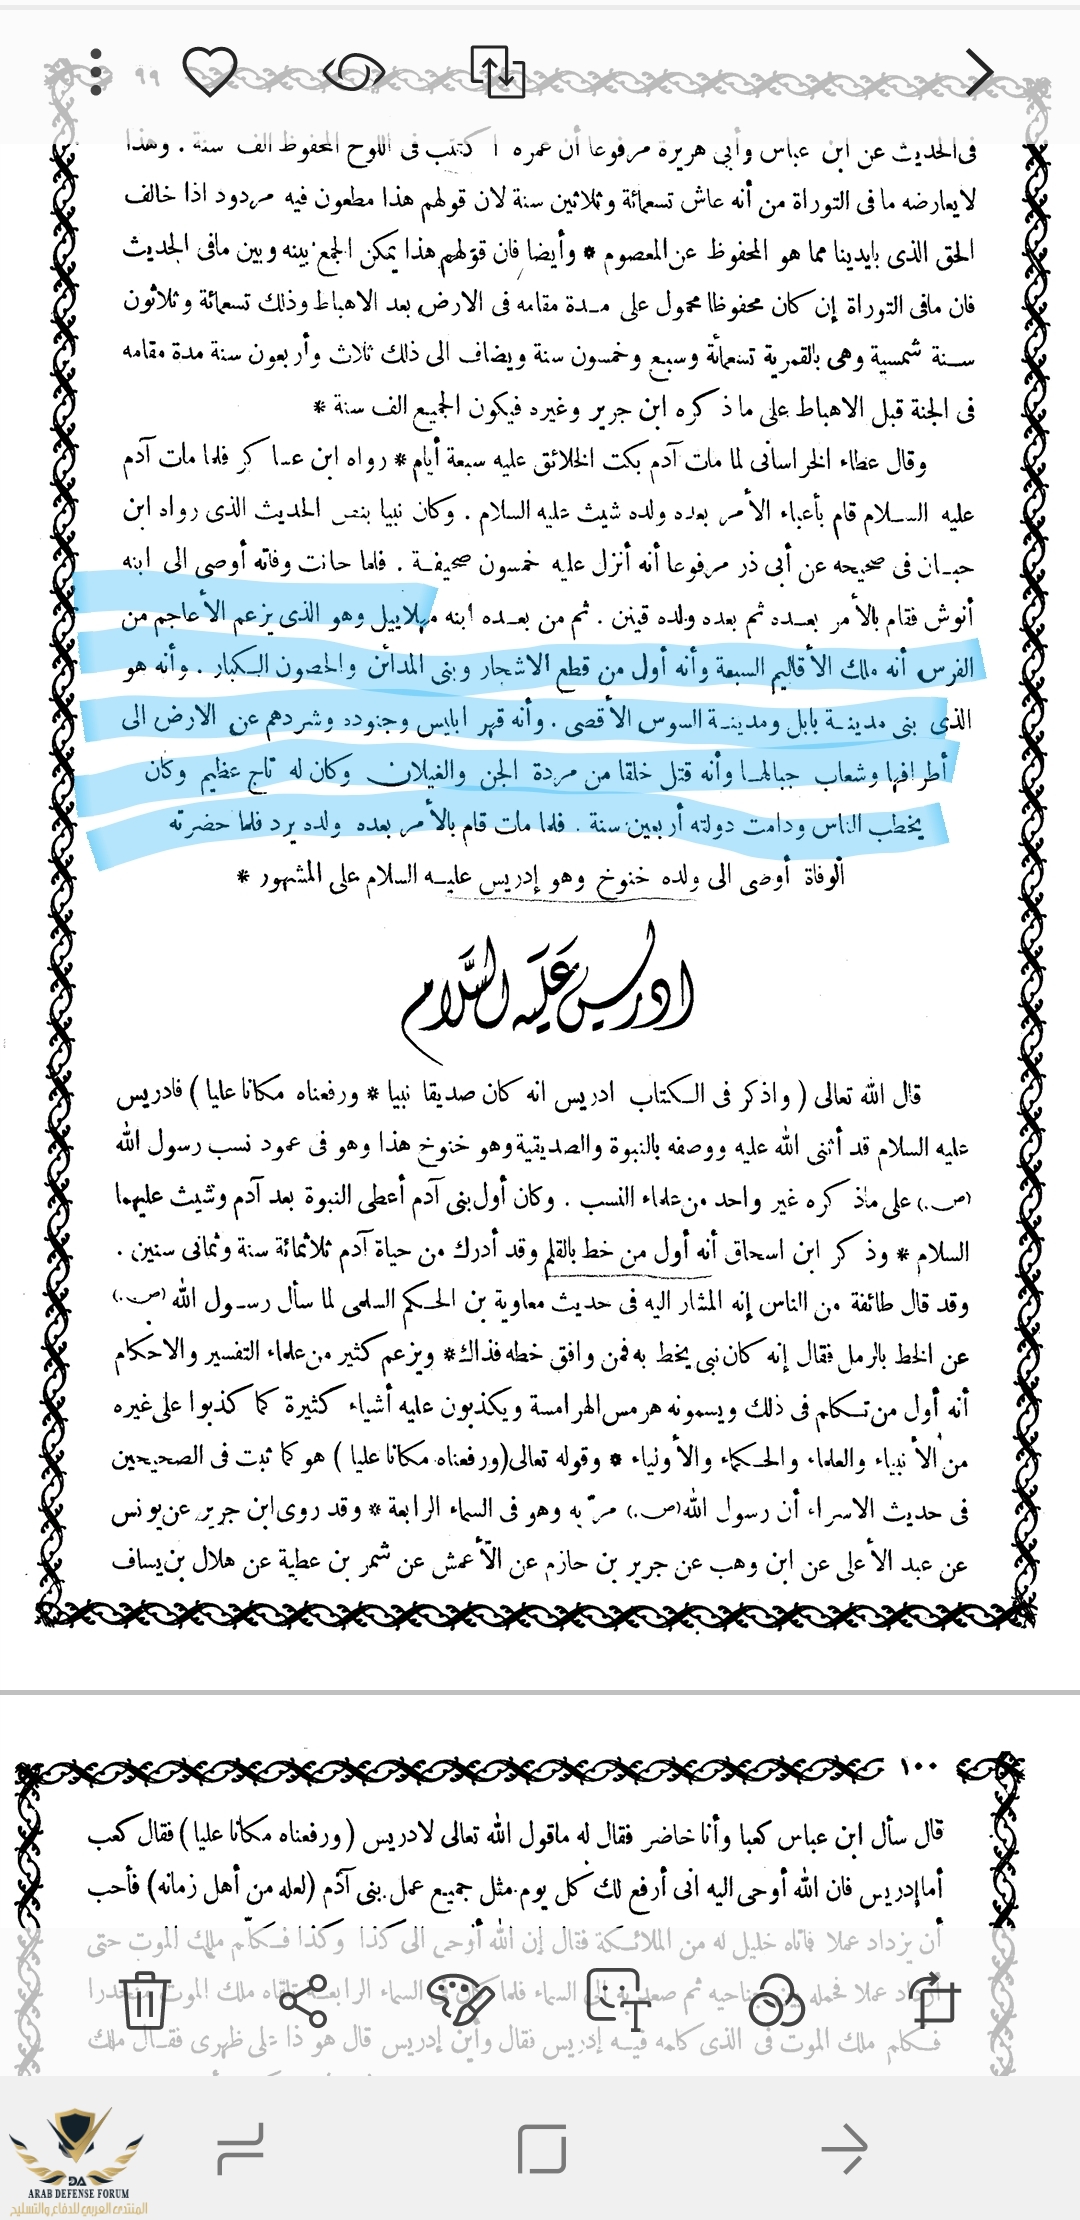 ٩٩
فى الحديث عن ابن عباس وأبى هريرة مرفوعا أن عمره اكتتب فى اللوح المحفوظ الف سنة . وهذا
لا يعارضه ما فى التوراة من أنه عاش تسعمائة وثلاثين سنة لان قولهم هذا مطعون فيه مردود اذا خالف
الحق الذى بايدينا مما هو المحفوظ عن المعصوم * وأيضا فان قولهم هذا يمكن الجمع بينه وبين مافى الحديث
فان مافى التوراة إن كان محفوظا محمول على مدة مقامه فى الارض بعد الاهباط وذلك تسعمائة وثلاثون
سنة شمسية وهى بالقمرية تسعمائة وسبع وخمسون سنة ويضاف الى ذلك ثلاث وأربعون سنة مدة مقامه
فى الجنة قبل الاهباط على ما ذكره ابن جرير وغيره فيكون الجميع الف سنة *
وقال عطاء الخراسانى لما مات آدم بكت الخلائق عليه سبعة أيام * رواه ابن عساكر فلما مات آدم
عليه السلام قام بأعباء الأمر بعده ولده شيث عليه السلام . وكان نبيا بنص الحديث الذى رواه ابن
حبان فى صحيحه عن أبى ذر مرفوعا أنه أنزل عليه خمسون صحيفة . فلما حانت وفاته أوصى الى ابنه
أنوش فقام بالأمر بعده ثم بعده ولده قينن . ثم من بعده ابنه مهلاييل وهو الذى يزعم الأعاجم من
الفرس أنه ملك الأقاليم السبعة وأنه أول من قطع الاشجار وبنى المدائن والحصون الكبار . وأنه هو
الذى بنى مدينة بابل ومدينة السوس الأقصى . وأنه قهر ابليس وجنوده وشردهم عن الارض الى
أطرافها وشعاب جبالها وأنه قتل خلقا من مردة الجن والغيلان وكان له تاج عظيم وكان
يخطب الناس ودامت دولته أربعين سنة . فلما مات قام بالأمر بعده ولده يرد فلما حضرته
الوفاة أوصى الى ولده خنوخ وهو إدريس عليه السلام على المشهور *
ادريس عليه السلام
قال الله تعالى ( واذكر فى الكتاب ادريس انه كان صديقا نبيا * ورفعناه مكانا عليا ) فادريس
عليه السلام قد أثنى الله عليه ووصفه بالنبوة والصديقية وهو خنوخ هذا وهو فى عمود نسب رسول الله
(ص.) على ماذكره غير واحد من علماء النسب . وكان أول بنى آدم أعطى النبوة بعد آدم وشيث عليهما
السلام * وذكر ابن اسحاق أنه أول من خط بالقلم وقد أدرك من حياة آدم ثلاثمائة سنة وثمانى سنين .
وقد قال طائفة من الناس إنه المشار اليه فى حديث معاوية بن الحكم السلمى لما سأل رسول الله (ص.)
عن الخط بالرمل فقال إنه كان نبى يخط به فمن وافق خطه فذاك * ويزعم كثير من علماء التفسير والاحكام
أنه أول من تكلم فى ذلك ويسمونه هرمس الهرامسة ويكذبون عليه أشياء كثيرة كما كذبوا على غيره
من الأنبياء والعلماء والحكماء والأولياء * وقوله تعالى (ورفعناه مكانا عليا ) هو كما ثبت فى الصحيحين
فى حديث الاسراء أن رسول الله (ص.) مرّ به وهو فى السماء الرابعة * وقد روى ابن جرير عن يونس
عن عبد الأعلى عن ابن وهب عن جرير بن حازم عن الأعمش عن شمر بن عطية عن هلال بن يساف
١٠٠
قال سأل ابن عباس كعبا وأنا حاضر فقال له ماقول الله تعالى لادريس ( ورفعناه مكانا عليا ) فقال كعب
أما إدريس فان الله أوحى اليه انى أرفع لك كل يوم مثل جميع عمل بنى آدم (لعله من أهل زمانه) فأحب
أن يزداد عملا فأتاه خليل له من الملائكة فقال إن الله أوحى الى كذا وكذا فكلم ملك الموت حتى
عملا فحمله بين جناحيه ثم صعد به الى السماء فلما كان فى السماء الرابعة تلقاه ملك الموت منحدرا
فكلم ملك الموت فى الذى كلمه فيه إدريس فقال وأين إدريس قال هو ذا على ظهرى فقال ملك
DA
ARAB DEFENSE FORUM
المنتدى العربي للدفاع والتسليح